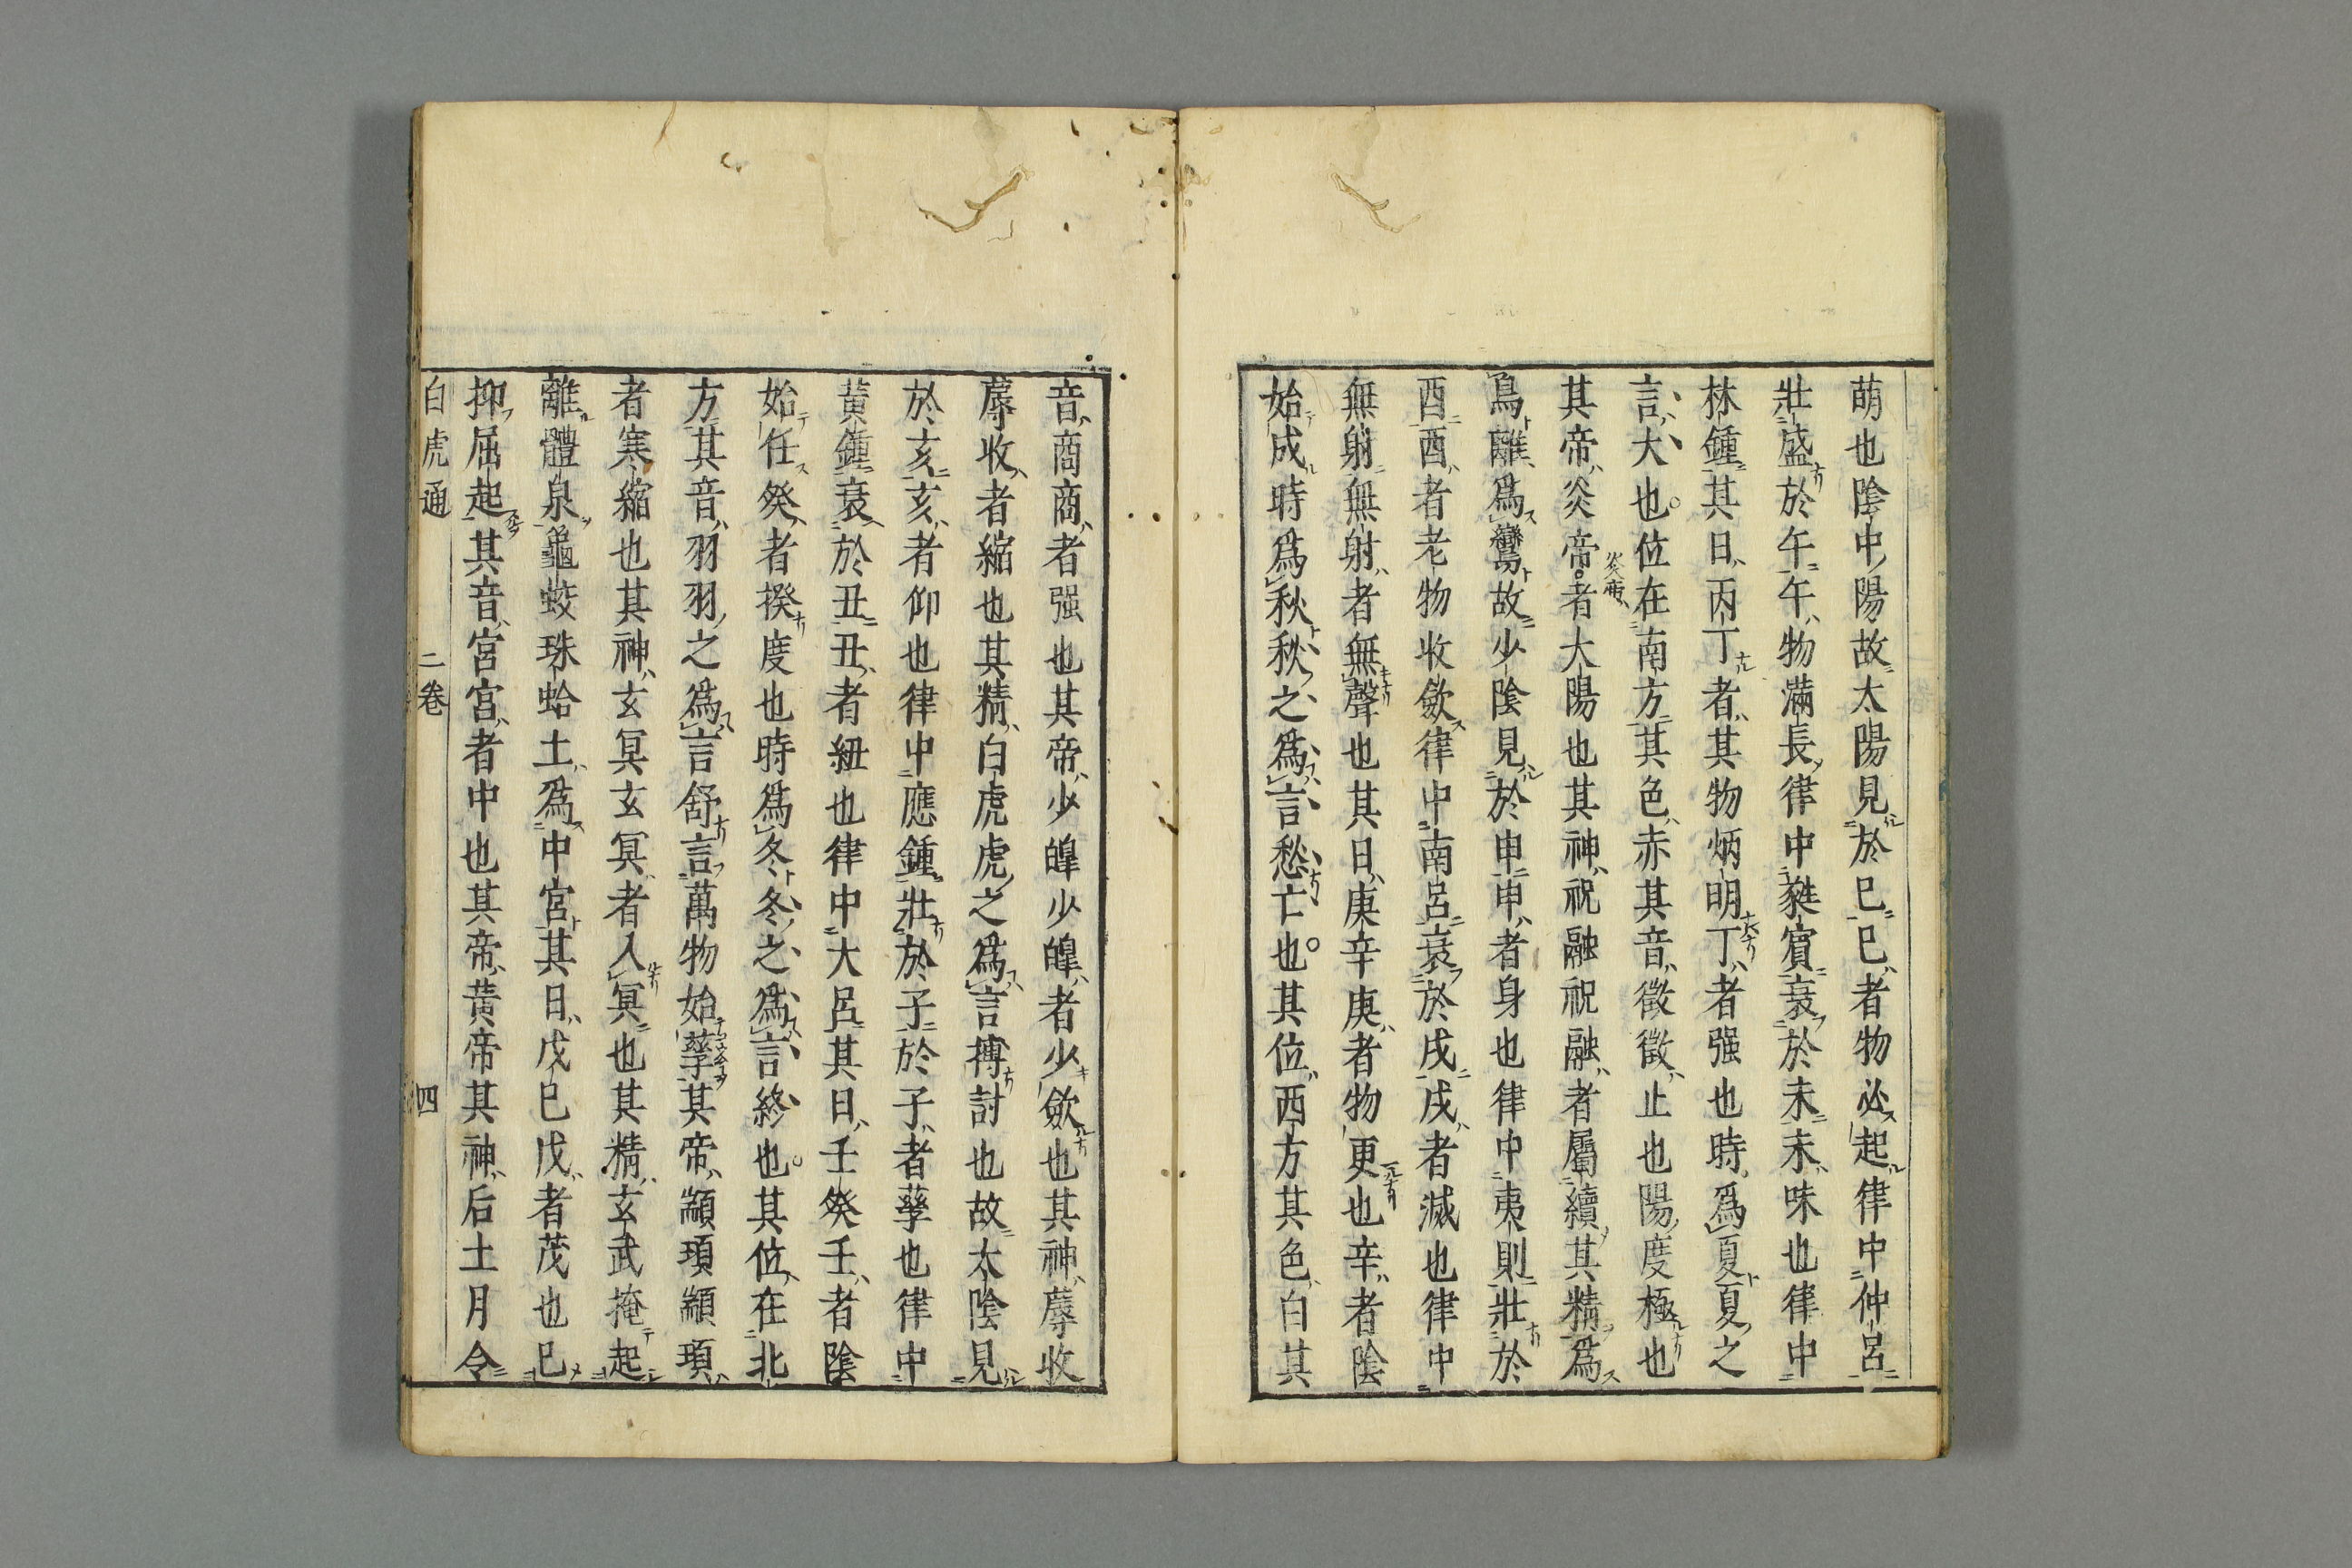 萌也陰中陽故太陽見於巳巳者物必起律中仲呂
壯盛於午午物滿長律中蕤賓衰於未未味也律中
林鍾其日丙丁者其物炳明丁者强也時爲夏夏之
言大也位在南方其色赤其音徵徵止也陽度極也
其帝炎帝者大陽也其神祝融祝融者屬續其精爲
鳥離爲鸞故少陰見於申申者身也律中夷則壯於
酉酉者老物收斂律中南呂衰於戌戌者滅也律中
無射無射者無聲也其日庚辛庚者物更也辛者陰
始成時爲秋秋之爲言愁亡也其位西方其色白其
音商商者强也其帝少皞少皞者少斂也其神蓐收
蓐收者縮也其精白虎虎之爲言搏討也故太陰見
於亥亥者仰也律中應鍾壯於子於子者孳也律中
黃鍾衰於丑丑者紐也律中大呂其日壬癸壬者陰
始任癸者揆度也時爲冬冬之爲言終也其位在北
方其音羽羽之爲言舒言萬物始孳其帝顓頊顓頊
者寒縮也其神玄冥玄冥者入冥也其精玄武掩起
離體泉龜蛟珠蛤土爲中宮其日戊己戊者茂也己
抑屈起其音宮宮者中也其帝黃帝其神后土月令
白虎通　二卷　四